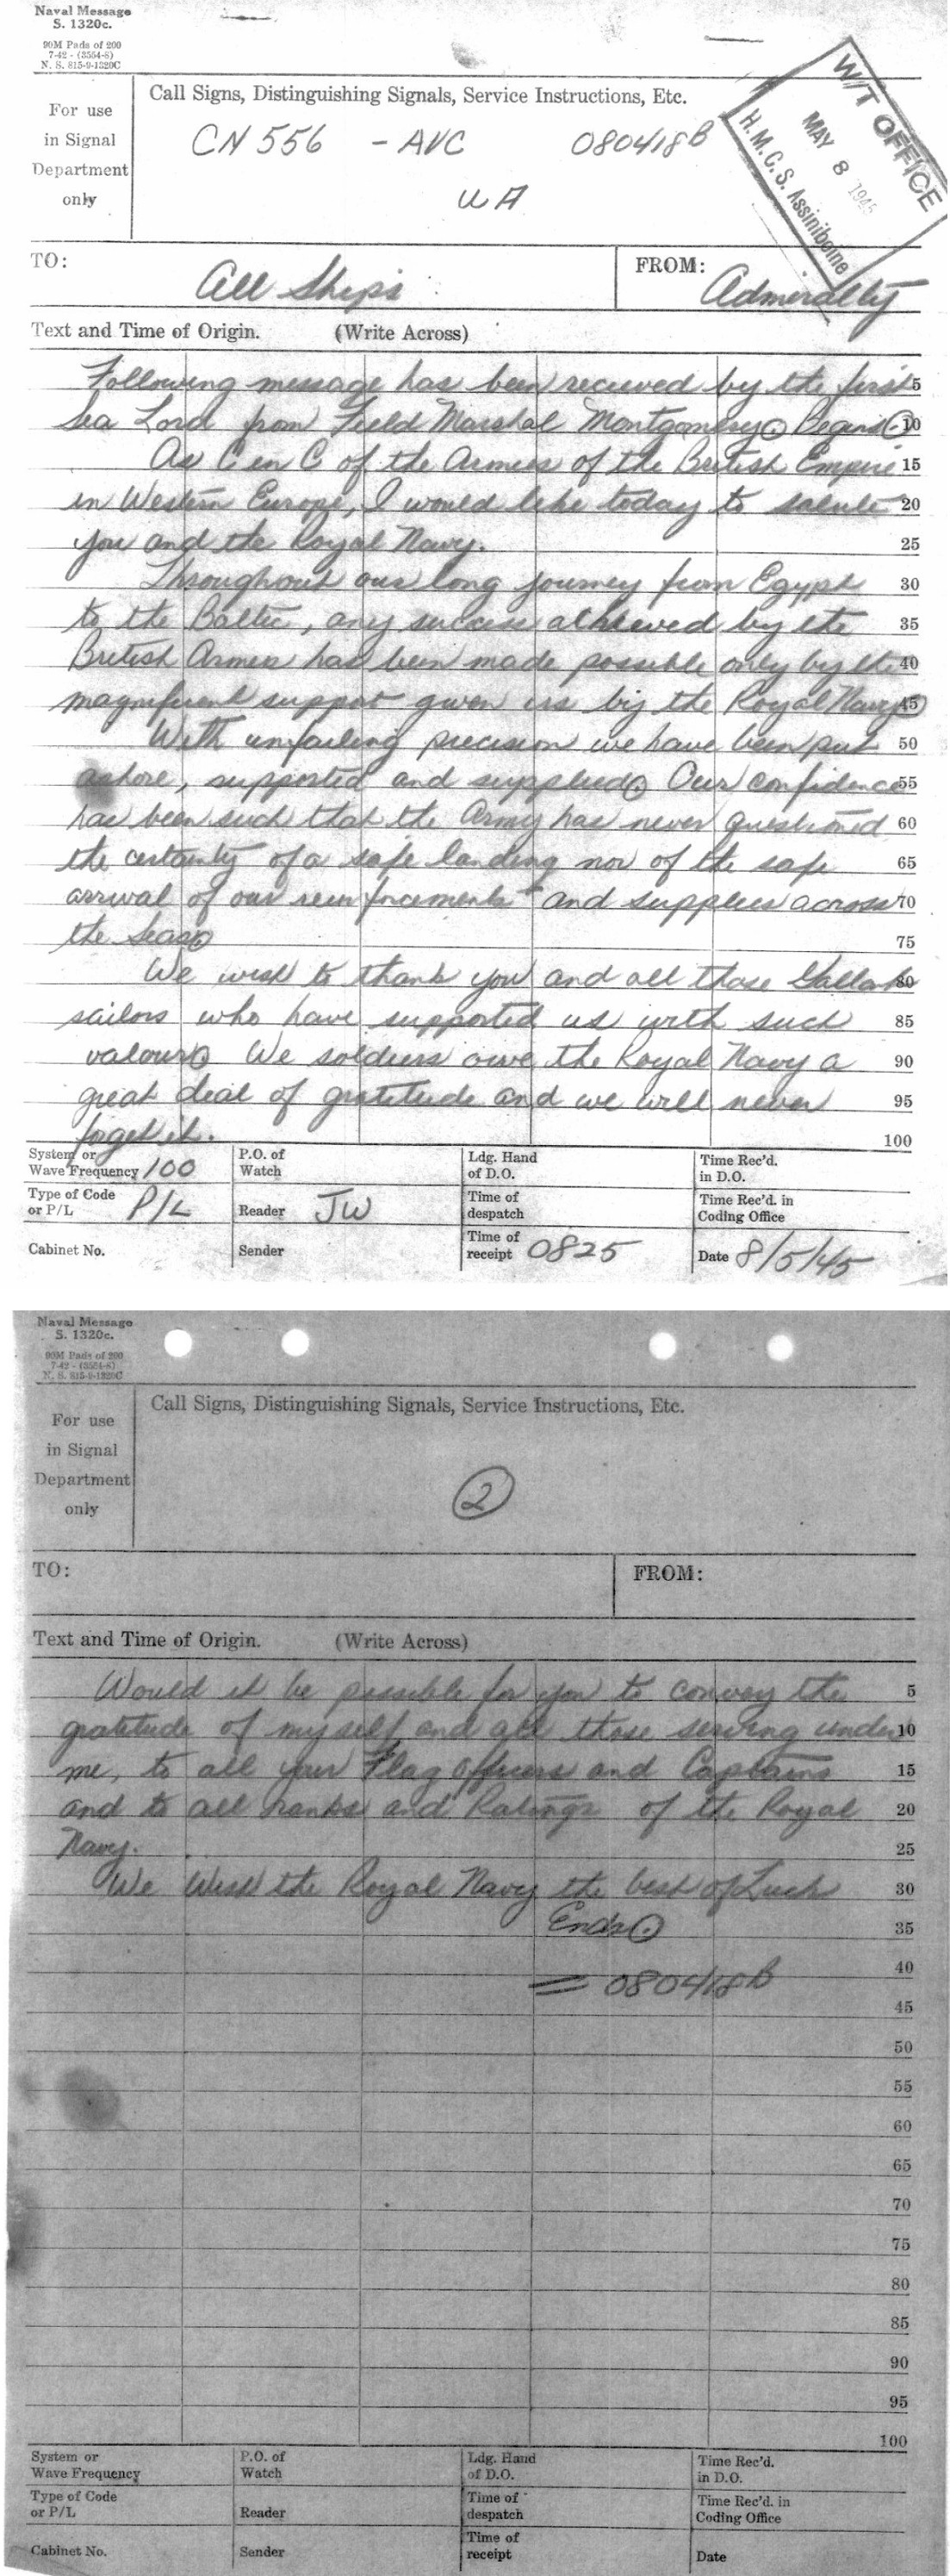 Naval Message
S. 1320c.
90M Pads of 200
7-42 - (3554-8)
N. S. 815-9-1320C
For use
in Signal
Department
only
Call Signs, Distinguishing Signals, Service Instructions, Etc.
CN 556 - AVC 080418B
W/T OFFICE
MAY 8 1945
H.M.C.S. Assiniboine
TO:
All Ships
FROM:
Admiralty
Text and Time of Origin. (Write Across)
Following message has been recieved by the first 5
Sea Lord from Field Marshal Montgomery⊙ Begins⊙ 10
As C in C of the Armies of the British Empire 15
in Western Europe, I would like today to salute 20
you and the Royal Navy. 25
Throughout our long journey from Egypt 30
to the Baltic, any success achieved by the 35
British Armies has been made possible only by the 40
magnificent support given us by the Royal Navy⊙ 45
With unfailing precision we have been put 50
ashore, supported and supplied⊙ Our confidence 55
has been such that the Army has never questioned 60
the certainty of a safe landing nor of the safe 65
arrival of our reinforcements and supplies across 70
the seas⊙ 75
We wish to thank you and all those Gallant 80
sailors who have supported us with such 85
valour⊙ We soldiers owe the Royal Navy a 90
great deal of gratitude and we will never 95
forget it. 100
System or
Wave Frequency 100
P.O. of
Watch
Ldg. Hand
of D.O.
Time Rec'd.
in D.O.
Type of Code
or P/L P/L
Reader JW
Time of
despatch
Time Rec'd. in
Coding Office
Cabinet No.
Sender
Time of
receipt 0825
Date 8/5/45
Naval Message
S. 1320c.
90M Pads of 200
7-42 - (3554-8)
N. S. 815-9-1320C
For use
in Signal
Department
only
Call Signs, Distinguishing Signals, Service Instructions, Etc.
2
TO:
FROM:
Text and Time of Origin. (Write Across)
Would it be possible for you to convey the 5
gratitude of myself and all those serving under 10
me, to all your Flag Officers and Captains 15
and to all ranks and Ratings of the Royal 20
Navy. 25
We Wish the Royal Navy the best of Luck 30
Ends⊙ 35
40
= 080418B
45
50
55
60
65
70
75
80
85
90
95
100
System or
Wave Frequency
P.O. of
Watch
Ldg. Hand
of D.O.
Time Rec'd.
in D.O.
Type of Code
or P/L
Reader
Time of
despatch
Time Rec'd. in
Coding Office
Cabinet No.
Sender
Time of
receipt
Date